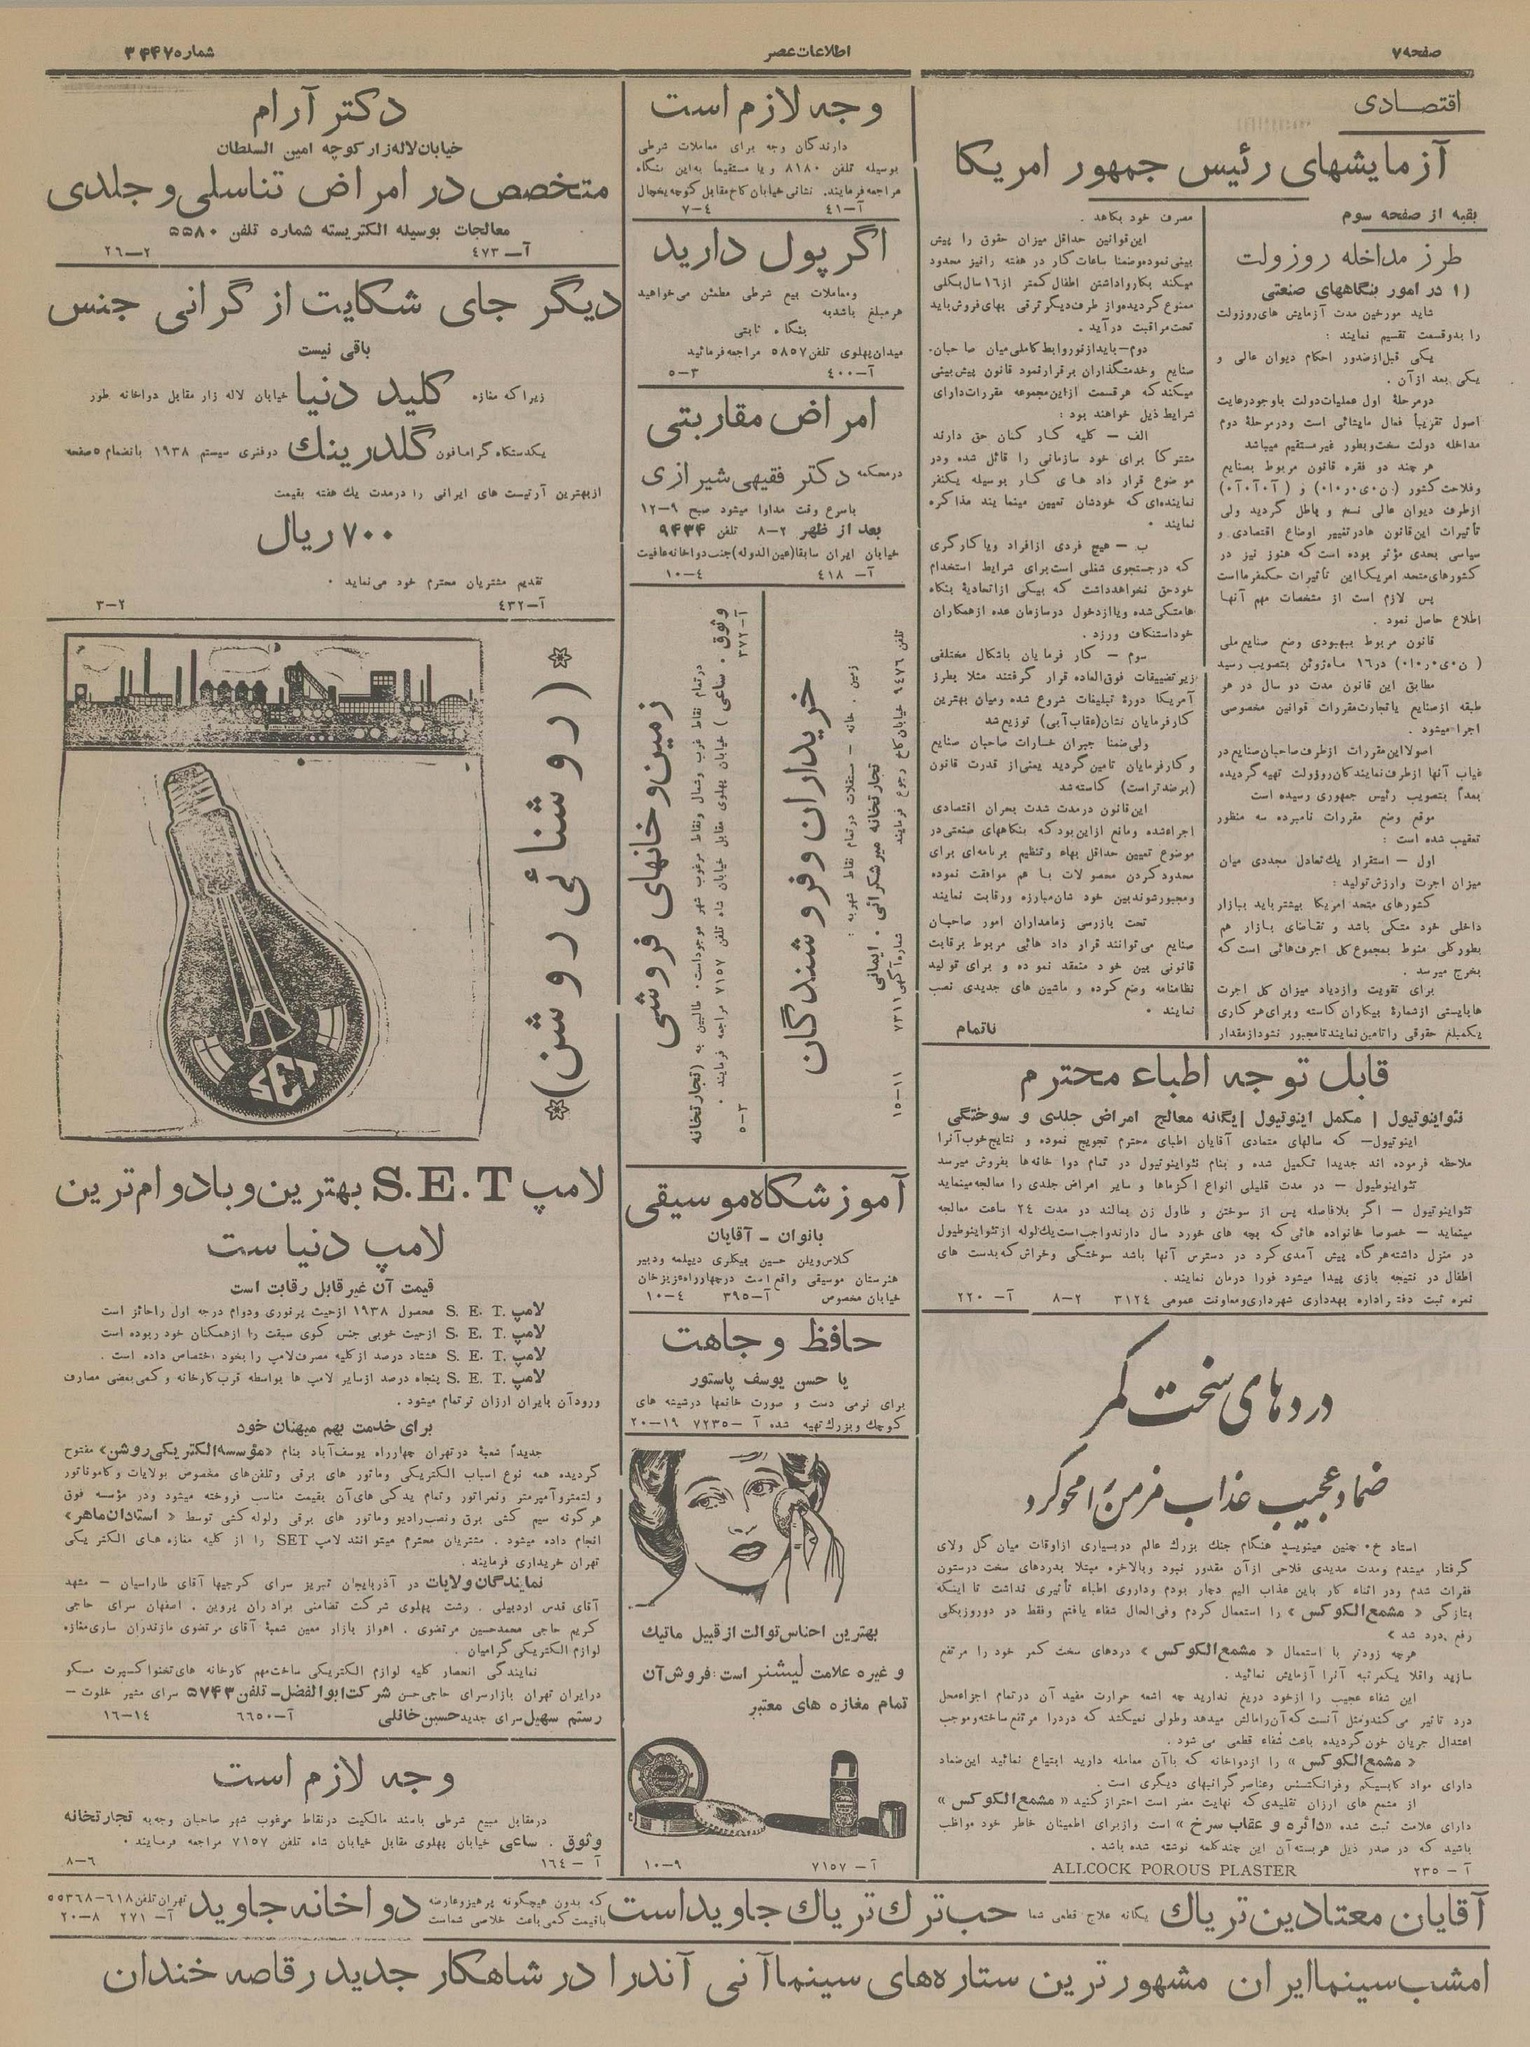 صفحه ۷
اطلاعات عصر
شماره ۳۴۴۷
اقتصادی
آزمایشهای رئیس جمهور امریکا
بقیه از صفحه سوم
طرز مداخله روزولت
۱) در امور بنگاههای صنعتی
شاید مورخین مدت آزمایش های روزولت
را بدو قسمت تقسیم نمایند :
یکی قبل از صدور احکام دیوان عالی و
یکی بعد از آن .
در مرحلهٔ اول عملیات دولت با وجود رعایت
اصول تقریباً فعال مایشائی است و در مرحلهٔ دوم
مداخله دولت سخت و بطور غیر مستقیم میباشد
هر چند دو فقره قانون مربوط بصنایع
وفلاحت کشور (ن۰ی۰ر۰ا۰) و (آ۰آ۰آ۰)
از طرف دیوان عالی نسخ و باطل گردید ولی
تأثیرات این قانون ها در تغییر اوضاع اقتصادی و
سیاسی بعدی مؤثر بوده است که هنوز نیز در
کشورهای متحد امریکا این تأثیرات حکمفرما است
پس لازم است از مشخصات مهم آنها
اطلاع حاصل نمود .
قانون مربوط ببهبودی وضع صنایع ملی
(ن۰ی۰ر۰ا۰) در ۱۶ ماه ژوئن بتصویب رسید
مطابق این قانون مدت دو سال در هر
طبقه از صنایع یا تجارت مقررات قوانین مخصوصی
اجرا میشود .
اصولا این مقررات از طرف صاحبان صنایع در
غیاب آنها از طرف نمایندگان روزولت تهیه گردیده
بعداً بتصویب رئیس جمهوری رسیده است
موقع وضع مقررات نامبرده سه منظور
تعقیب شده است :
اول — استقرار یک تعادل مجددی میان
میزان اجرت وارزش تولید :
کشورهای متحد امریکا بیشتر باید ببازار
داخلی خود متکی باشد و تقاضای بازار هم
بطور کلی منوط بمجموع کل اجرت هائی است که
بخرج میرسد .
برای تقویت وازدیاد میزان کل اجرت
ها بایستی از شمارهٔ بیکاران کاسته و برای هر کاری
یک مبلغ حقوقی را تامین نمایند تا مجبور نشود از مقدار
مصرف خود بکاهد .
این قوانین حداقل میزان حقوق را پیش
بینی نموده و ضمنا ساعات کار در هفته را نیز محدود
میکند بکار واداشتن اطفال کمتر از ۱۶ سال بکلی
ممنوع گردیده و از طرف دیگر ترقی بهای فروش باید
تحت مراقبت درآید .
دوم — باید از نو روابط کاملی میان صاحبان
صنایع و خدمتگذاران برقرار نمود قانون پیش بینی
میکند که هر قسمت از این مجموعه مقررات دارای
شرایط ذیل خواهند بود :
الف — کلیه کار کنان حق دارند
مشترکا برای خود سازمانی را قائل شده و در
موضوع قرار داد های کار بوسیله یکنفر
نماینده‌ای که خودشان تعیین مینمایند مذاکره
نمایند .
ب — هیچ فردی از افراد ویا کارگری
که در جستجوی شغلی است برای شرایط استخدام
خود حق نخواهد داشت که بیکی از اتحادیهٔ بنگاه
ها متکی شده ویا از دخول در سازمان عده از همکاران
خود استنکاف ورزد .
سوم — کار فرمایان باشکال مختلفی
زیر تضییقات فوق العاده قرار گرفتند مثلا بطرز
آمریکا دورهٔ تبلیغات شروع شده ومیان بهترین
کارفرمایان نشان (عقاب آبی) توزیع شد
ولی ضمنا جبران خسارات صاحبان صنایع
و کارفرمایان تامین گردید یعنی از قدرت قانون
(برضد تراست) کاسته شد
این قانون در مدت شدت بحران اقتصادی
اجراء شده ومانع از این بود که بنگاههای صنعتی در
موضوع تعیین حداقل بهاء وتنظیم برنامه‌ای برای
محدود کردن محصولات با هم موافقت نموده
ومجبور شوند بین خودشان مبارزه ورقابت نمایند
تحت بازرسی زمامداران امور صاحبان
صنایع می‌توانند قرار داد هائی مربوط برقابت
قانونی بین خود منعقد نموده و برای تولید
نظامنامه وضع کرده و ماشین های جدیدی نصب
نمایند .
ناتمام
قابل توجه اطباء محترم
نئواینوتیول | مکمل اینوتیول | یگانه معالج امراض جلدی و سوختگی
اینوتیول— که سالهای متمادی آقایان اطبای محترم تجویج نموده و نتایج خوب آنرا
ملاحظه فرموده اند جدیدا تکمیل شده و بنام نئواینوتیول در تمام دوا خانه‌ها بفروش میرسد
نئواینوطیول — در مدت قلیلی انواع اکزماها و سایر امراض جلدی را معالجه مینماید
نئواینوتیول — اگر بلافاصله پس از سوختن و طاول زن بمالند در مدت ۲۴ ساعت معالجه
مینماید — خصوصا خانواده هائی که بچه های خورد سال دارند واجب است یک لوله از نئواینوطیول
در منزل داشته هرگاه پیش آمدی کرد در دسترس آنها باشد سوختگی وخراش که بدست های
اطفال در نتیجه بازی پیدا میشود فورا درمان نمایند .
نمره ثبت دفتر اداره بهداری شهرداری ومعاونت عمومی ۳۱۲۴ ۲–۸ آ– ۲۲۰
دردهای سخت کمر
ضماد عجیب عذاب مزمن را محو کرد
استاد خ. چنین مینویسد هنگام جنگ بزرگ عالم در بسیاری از اوقات میان گل ولای
گرفتار میشدم ومدت مدیدی فلاحی از آن مقدور نبود وبالاخره مبتلا بدردهای سخت در ستون
فقرات شدم ودر اثناء کار باین عذاب الیم دچار بودم وداروی اطباء تأثیری نداشت تا اینکه
بتازگی « مشمع الکوکس » را استعمال کردم وفی الحال شفاء یافتم وفقط در دو روز بکلی
رفع درد شد »
هرچه زودتر با استعمال « مشمع الکوکس » دردهای سخت کمر خود را مرتفع
سازید واقلا یکمرتبه آنرا آزمایش نمائید .
این شفاء عجیب را از خود دریغ ندارید چه اشعه حرارت مفید آن در تمام اجزاء محل
درد تاثیر می کند ومثل آنست که آن را مالش میدهد وطولی نمیکشد که درد را مرتفع ساخته وموجب
اعتدال جریان خون گردیده باعث شفاء قطعی می شود .
« مشمع الکوکس » را از دواخانه که با آن معامله دارید ابتیاع نمائید این ضماد
دارای مواد کاپسیکم وفرانکنسنس وعناصر گرانبهای دیگری است .
از مشمع های ارزان تقلیدی که نهایت مضر است احتراز کنید « مشمع الکوکس »
دارای علامت ثبت شده «دائره و عقاب سرخ » است وازبرای اطمینان خاطر خود مواظب
باشید که در صدر ذیل هر بسته آن این چند کلمه نوشته شده باشد .
آ – ۲۳۵ ALLCOCK POROUS PLASTER
وجه لازم است
دارندگان وجه برای معاملات شرطی
بوسیله تلفن ۸۱۸۰ ویا مستقیما به این بنگاه
مراجعه فرمایند. نشانی خیابان کاخ مقابل کوچه یخچال
آ–۴۱ ۴–۷
اگر پول دارید
ومعاملات بیع شرطی مطمئن می‌خواهید
هر مبلغ باشد به
بنگاه ثابتی
میدان پهلوی تلفن ۵۸۵۷ مراجعه فرمائید
آ–۴۰۰ ۳–۵
امراض مقاربتی
در محکمه دکتر فقیهی شیرازی
باسرع وقت مداوا میشود صبح ۹–۱۲
بعد از ظهر ۲–۸ تلفن ۹۴۳۴
خیابان ایران سابقا (عین الدوله) جنب دواخانه عافیت
آ– ۴۱۸ ۴–۱۰
تلفن ۹۴۷۶ خیابان کاخ رجوع فرمایند شماره آگهی ۷۳۱۱ ۱۱–۱۵
زمین . خانه — مستغلات در تمام نقاط شهر به :
تجارتخانه میر شکرائی . ایمانی
خریداران و فروشندگان
آ–۳۷۲ ۳–۵
وثوق . ساعی ) خیابان پهلوی مقابل خیابان شاه تلفن ۷۱۵۷ مراجعه فرمایند .
در تمام نقاط غرب وشمال ونقاط مرغوب شهر موجود است. طالبین به (تجارتخانه
زمین و خانهای فروشی
آموزشگاه موسیقی
بانوان – آقایان
کلاس ویلن حسین پیکلری دیپلمه ودبیر
هنرستان موسیقی واقع است در چهارراه عزیزخان
خیابان مخصوص آ–۳۹۵ ۴–۱۰
حافظ وجاهت
یا حسن یوسف پاستور
برای نرمی دست و صورت خانمها در شیشه های
کوچک و بزرگ تهیه شده آ –۷۲۳۵ ۱۹–۲۰
بهترین اجناس توالت از قبیل ماتیک
و غیره علامت لیشنر است : فروش آن
تمام مغازه های معتبر
آ– ۷۱۵۷ ۹–۱۰
دکتر آرام
خیابان لاله زار کوچه امین السلطان
متخصص در امراض تناسلی و جلدی
معالجات بوسیله الکتریسته شماره تلفن ۵۵۸۰
آ–۴۷۳ ۲–۲۶
دیگر جای شکایت از گرانی جنس
باقی نیست
زیرا که مغازه کلید دنیا خیابان لاله زار مقابل دواخانه طور
یکدستگاه گرامافون گلدرینک دو فنری سیستم ۱۹۳۸ بانضمام ۵ صفحه
از بهترین آرتیست های ایرانی را در مدت یک هفته بقیمت
۷۰۰ ریال
تقدیم مشتریان محترم خود می‌نماید .
آ–۴۳۲ ۲–۳
(روشنائی روشن)
SET
لامپ S.E.T بهترین و بادوام ترین
لامپ دنیاست
قیمت آن غیر قابل رقابت است
لامپ S. E. T. محصول ۱۹۳۸ از حیث پر نوری ودوام درجه اول را حائز است
لامپ S. E. T. از حیث خوبی جنس گوی سبقت را از همکنان خود ربوده است
لامپ S. E. T. هشتاد درصد از کلیه مصرف لامپ را بخود اختصاص داده است .
لامپ S. E. T. پنجاه درصد از سایر لامپ ها بواسطه قرب کارخانه و کمی بعضی مصارف
ورود آن بایران ارزان تر تمام میشود .
برای خدمت بهم میهنان خود
جدیداً شعبهٔ در تهران چهارراه یوسف آباد بنام «مؤسسه الکتریکی روشن» مفتوح
گردیده همه نوع اسباب الکتریکی وماتور های برقی وتلفن‌های مخصوص بولایات و کاموناتور
ولتمتر و آمپرمتر ونمراتور وتمام یدکی های آن بقیمت مناسب فروخته میشود ودر مؤسسه فوق
هر گونه سیم کشی برق ونصب رادیو وماتور های برقی ولوله کشی توسط « استادان ماهر»
انجام داده میشود . مشتریان محترم میتوانند لامپ SET را از کلیه مغازه های الکتریکی
تهران خریداری فرمایند .
نمایندگان ولایات در آذربایجان تبریز سرای گرجیها آقای طاراسیان – مشهد
آقای قدس اردبیلی . رشت پهلوی شرکت تضامنی برادران پروین . اصفهان سرای حاجی
کریم حاجی محمد حسین مرتضوی . اهواز بازار معین شعبهٔ آقای مرتضوی مازندران ساری مغازه
لوازم الکتریکی گرامیان .
نمایندگی انحصار کلیه لوازم الکتریکی ساخت مهم کارخانه های تخنواکسپرت مسکو
در ایران تهران بازار سرای حاجی حسن شرکت ابوالفضل– تلفن ۵۷۴۳ سرای مشیر خلوت –
رستم سهیل سرای جدید حسین خانلی آ–۶۶۵۰ ۱۴–۱۶
وجه لازم است
در مقابل مبیع شرطی باسند مالکیت در نقاط مرغوب شهر صاحبان وجه به تجارتخانه
وثوق . ساعی خیابان پهلوی مقابل خیابان شاه تلفن ۷۱۵۷ مراجعه فرمایند .
آ – ۱۶۴ ۶–۸
آقایان معتادین تریاک یگانه علاج قطعی شما حب ترک تریاک جاوید است که بدون هیچگونه پرهیز و عارضه باقیمت کمی باعث خلاصی شماست دواخانه جاوید تهران تلفن ۶۱۸–۵۵۳۶۸ آ– ۲۷۱ ۸–۲۰
امشب سینما ایران مشهور ترین ستاره‌های سینما آنی آندرا در شاهکار جدید رقاصه خندان